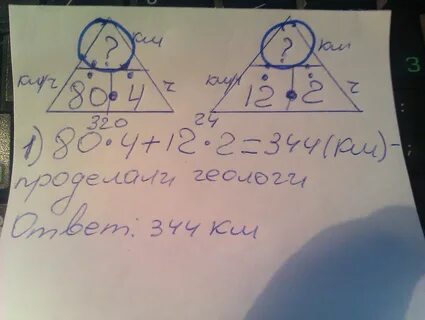 ? км ? км
км/ч 80 • 4 ч км/ч 12 • 2 ч
320 24
1) 80•4+12•2=344(км)-
проделали геологи
Ответ: 344 км
3